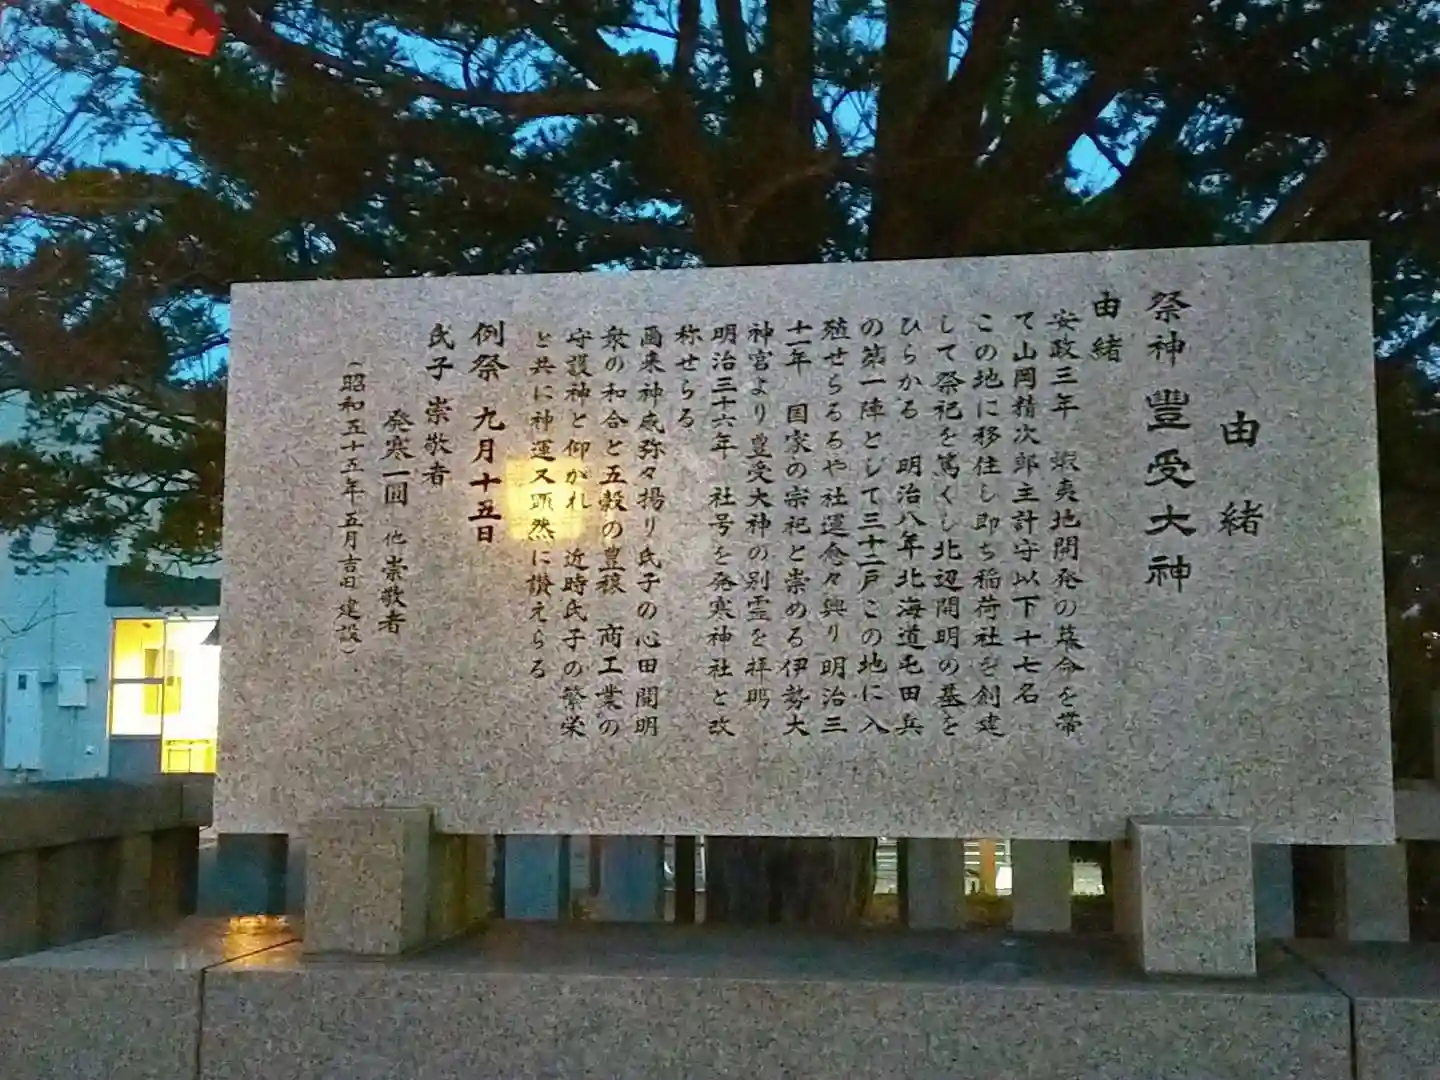 由緒
祭神 豊受大神
由緒
安政三年 蝦夷地開発の幕命を帯
て山岡精次郎主計守以下十七名
この地に移住し即ち稲荷社を創建
して祭祀を篤くし北辺開明の基を
ひらかる 明治八年北海道屯田兵
の第一陣として三十二戸この地に入
殖せらるるや社運愈々興り明治三
十一年 国家の宗祀と崇める伊勢大
神宮より豊受大神の別霊を拝
明治三十六年 社号を発寒神社と改
称せらる
爾来神威弥々揚り氏子の心田開明
衆の和合と五穀の豊穣 商工業の
守護神と仰がれ 近時氏子の繁栄
と共に神運又顕然に讃えらる
例祭 九月十五日
氏子 崇敬者
発寒一圓 他 崇敬者
(昭和五十五年五月吉日 建設)